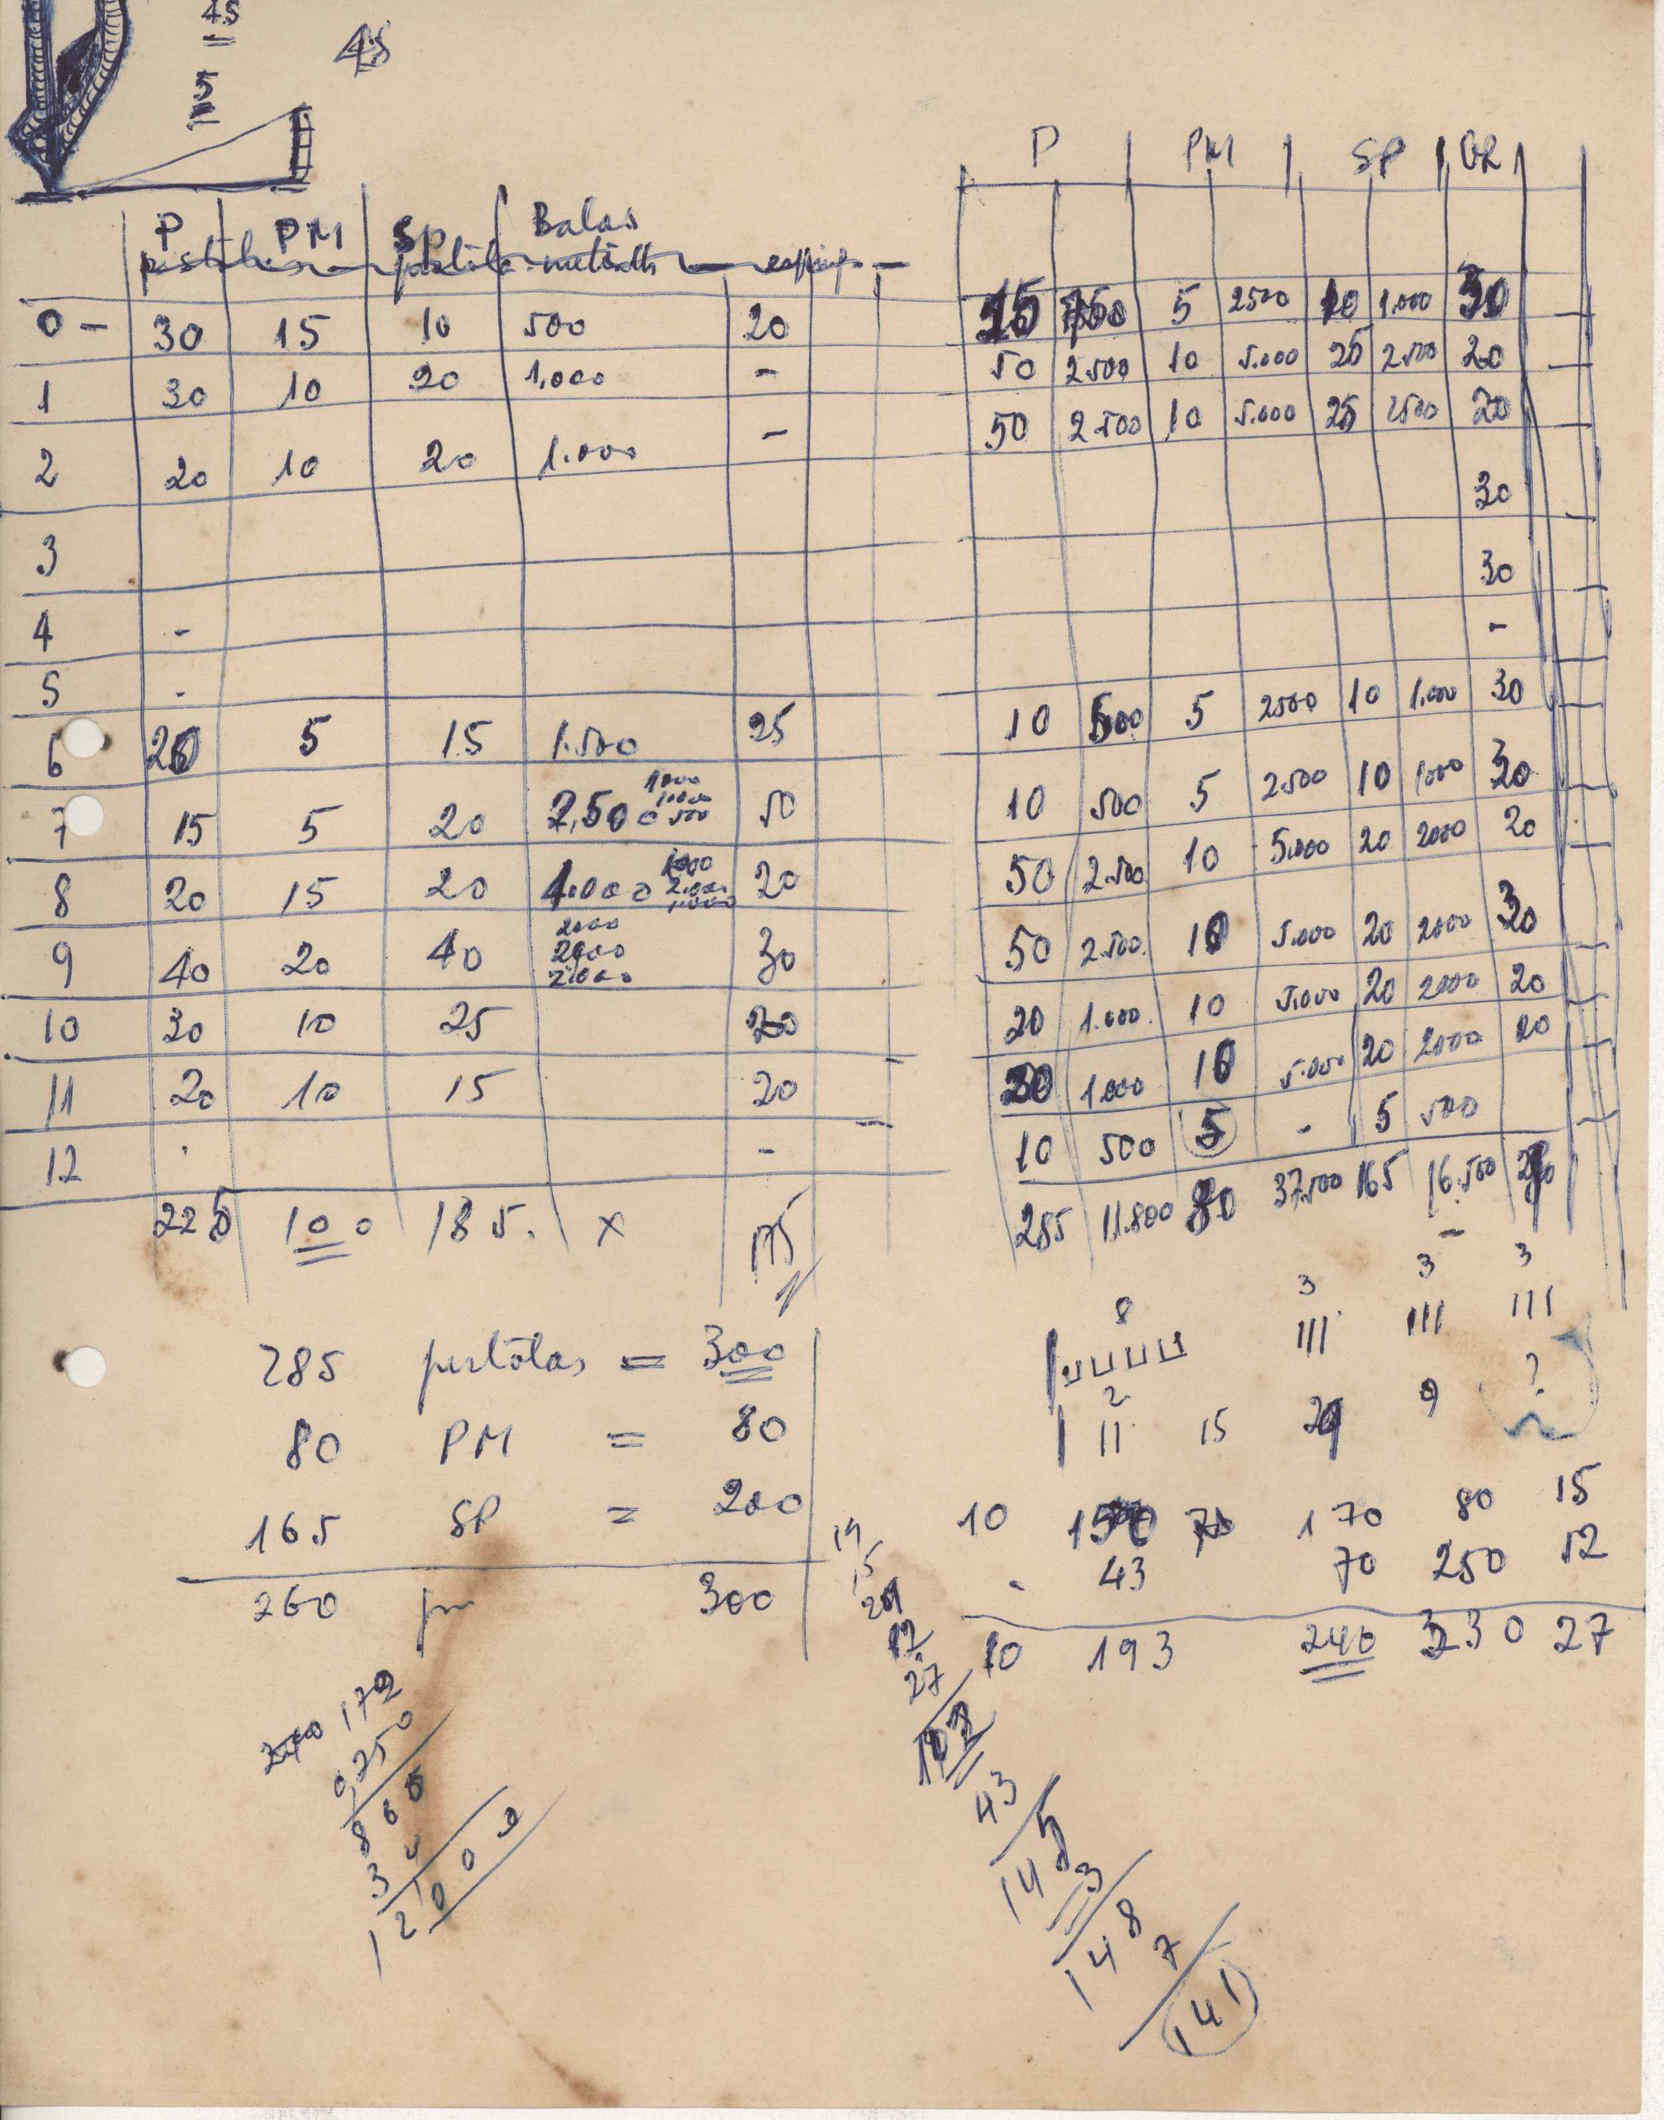 45
45
5
P PM SP Balas
pistolas pistola metralh esping
0 - 30 15 10 500 20
1 30 10 20 1.000 -
2 20 10 20 1.000 -
3
4 -
5 -
6 20 5 15 1.500 25
7 15 5 20 2,500 1000 1.000 500 50
8 20 15 20 4.000 1000 2.000 1.000 20
9 40 20 40 2000 2000 2.000 30
10 30 10 25 20
11 20 10 15 20
12 . -
225 100 185. x 175
P PM SP GR
15 750 5 2500 10 1.000 30
50 2.500 10 5.000 25 2.500 20
50 2.500 10 5.000 25 2500 20
30
30
-
10 500 5 2500 10 1.000 30
10 500 5 2.500 10 1000 30
50 2.500 10 5.000 20 2000 20
50 2.500. 10 5.000 20 2000 30
20 1.000. 10 5.000 20 2000 20
20 1.000 10 5.000 20 2000 20
10 500 5 - 5 500
285 11.800 80 37.500 165 16.500
285 pistolas = 300
80 PM = 80
165 SP = 200
260 300
8 3 3 3
III III III
2 ?
II 15 9
10 170 80 15
43 70 250 12
10 193 240 330 27
172
0,250
860
34
1200
19
15
12
27
102
43
145
3
148
7
141